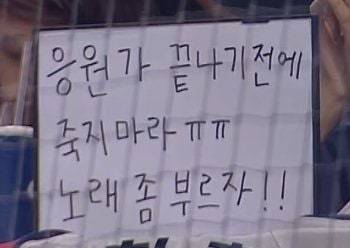 응원가 끝나기전에
죽지마라ㅠㅠ
노래 좀 부르자!!